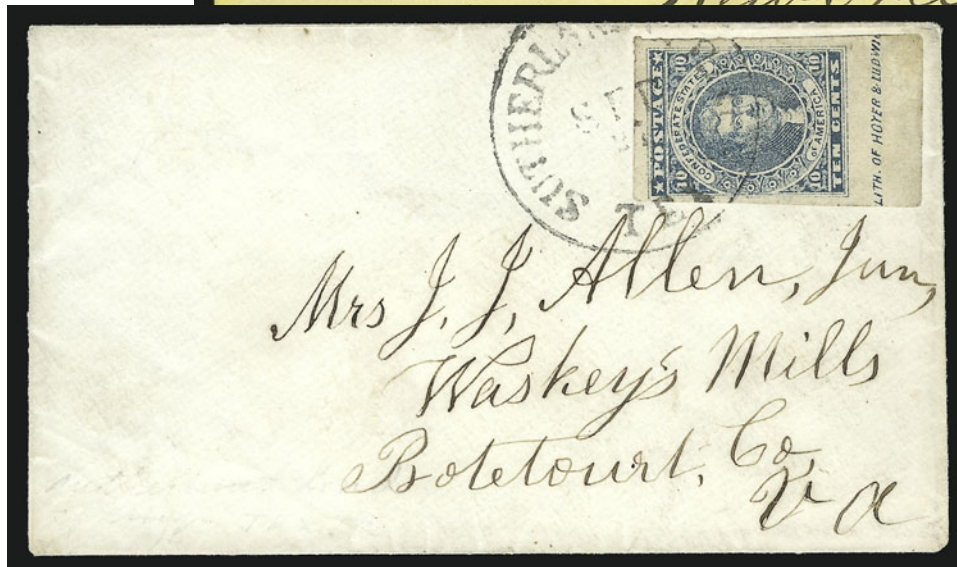 SUTHERLAND
TEX
POSTAGE
CONFEDERATE STATES
OF AMERICA
TEN CENTS
10 10
10 10
LITH. OF HOYER & LUDWIG
Mrs J. J. Allen, Jun,
Waskey's Mills
Botetourt, Co
Va